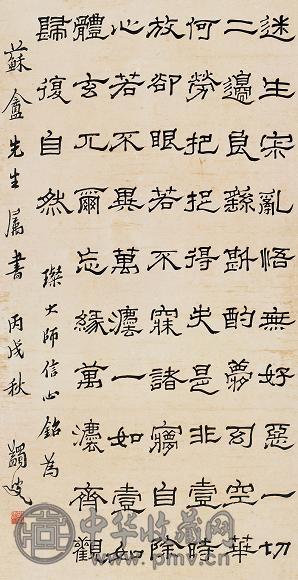 迷生宋亂悟無好惡一切
二邊良繇斟酌夢幻空華
何勞把捉得失是非壹時
放卻眼若不寐諸㝱自除
心若不異萬灋一如壹如
體玄兀爾忘緣萬灋齊觀
歸復自然
璨大師信心銘為
蘇盦先生属書 丙戌秋 蠲叟
中华收藏网
www.pmv.cn